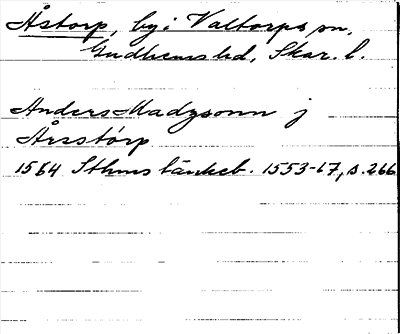 Åstorp, by i Valtorps sn,
Gudhems hd, Skar. l.
Anders Madzsonn j
Årsstórp
1564 Sthms tänkeb. 1553-67, s. 266